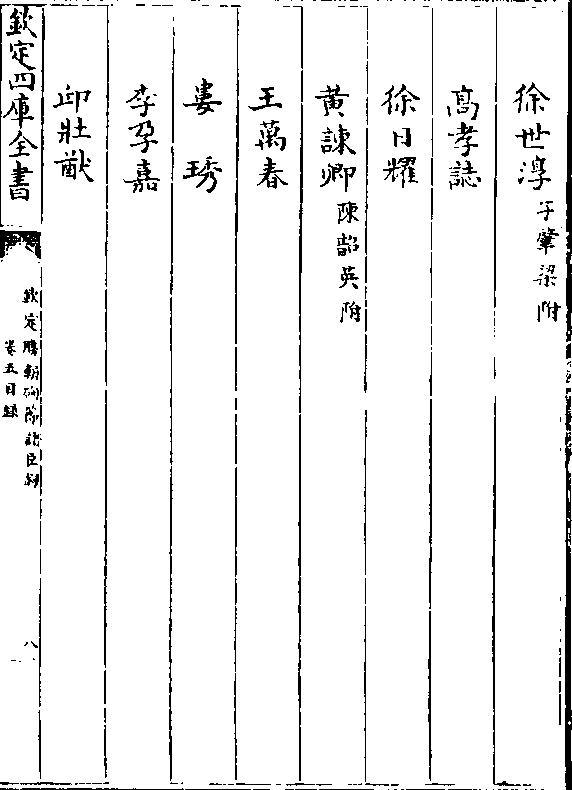 徐世淳子肇梁附
高孝誌
徐日耀
黄諫卿陳韶英附
王萬春
婁琇
李孕嘉
邱壯猷
欽定四庫全書
欽定勝朝殉節諸臣録
卷五目録
八